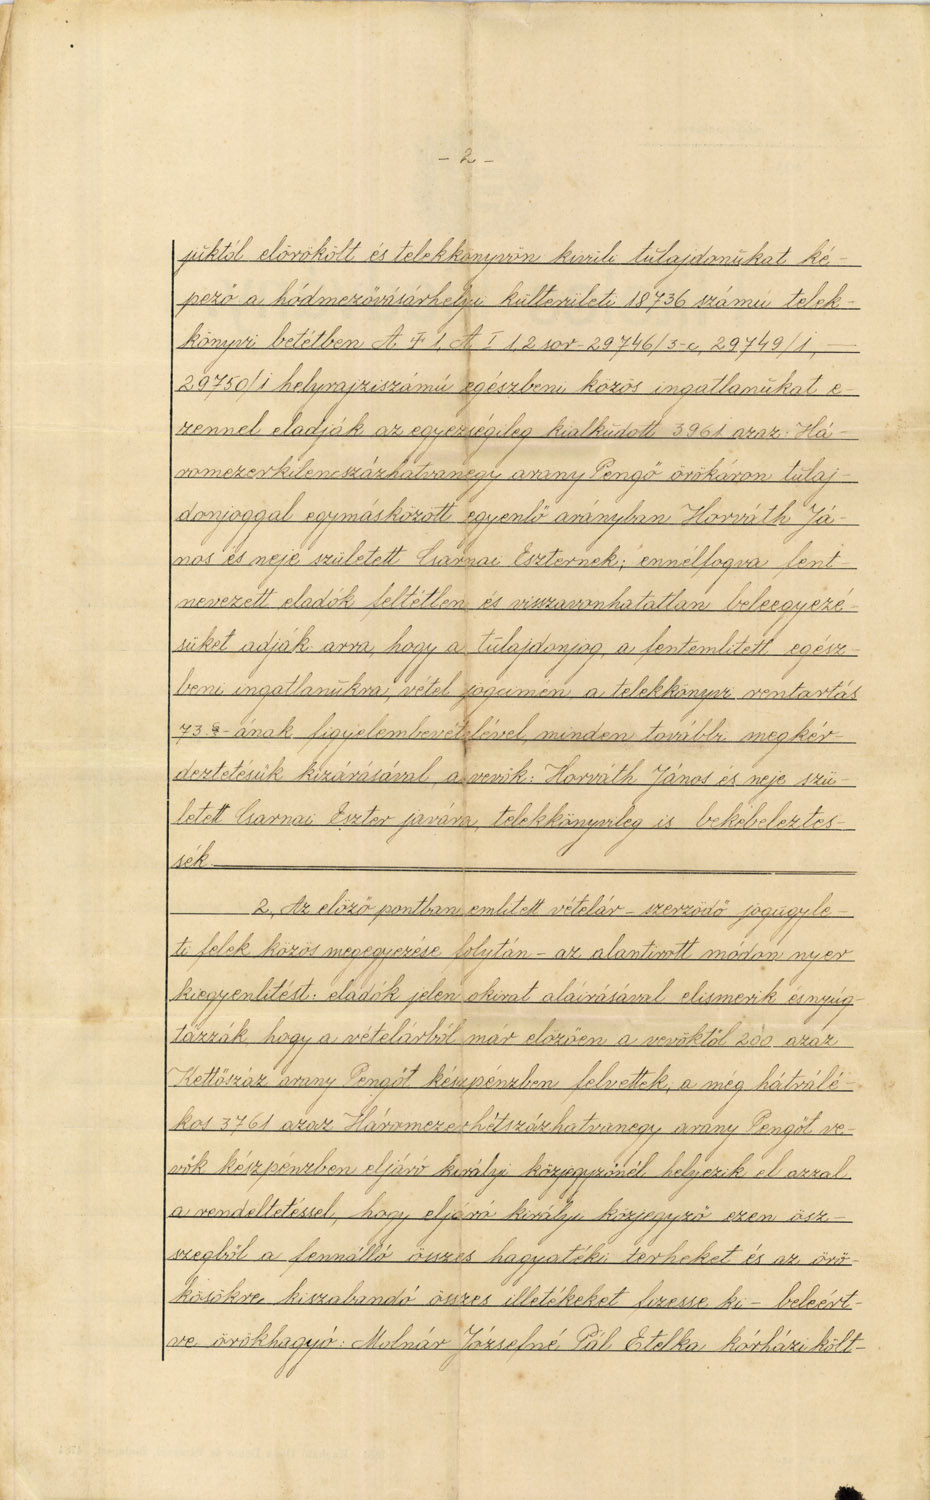 - 2 -
juktól elörökölt és telekkönyvön kivüli tulajdonukat ké-
pező a hódmezővásárhelyi külterületi 18736 számú telek-
könyvi betétben A + 1, A I 1, 2 sor- 29746/3-c, 29749/1, —
29750/1 helyrajziszámú egészbeni közös ingatlanukat e-
zennel eladják az egyezségileg kialkudott 3961 azaz: Há-
romezerkilencszázhatvanegy arany Pengő örökáron tulaj-
donjoggal egymásközött egyenlő arányban Horváth Já-
nos és neje született Csarnai Eszternek; ennélfogva fent-
nevezett eladók feltétlen és visszavonhatatlan beleegyezé-
süket adják arra, hogy a tulajdonjog, a fentemlitett egész-
beni ingatlanukra, vétel jogcimén, a telekkönyvi rentartás
73.§-ának figyelembevételével, minden további megkér-
deztetésük kizárásával, a vevők: Horváth János és neje szü-
letett Csarnai Eszter javára, telekkönyvileg is bekebeleztes-
sék.
2, Az előző pontban emlitett vételár - szerződő jogügyle-
ti felek közös megegyezése folytán - az alantirott módon nyer
kiegyenlitést: eladók jelen okirat aláirásával elismerik és nyúg-
tázzák hogy a vételárból már előzően a vevőktől 200 azaz
Kettőszáz arany Pengőt készpénzben felvettek, a még hátrálé-
kos 3761 azaz Háromezerhétszázhatvanegy arany Pengőt ve-
vők készpénzben eljáró királyi közjegyzőnél helyezik el azzal
a rendeltetéssel, hogy eljáró királyi közjegyző ezen ösz-
szegből a fennálló összes hagyatéki terheket és az örö-
kösökre kiszabandó összes illetékeket fizesse ki - beleért-
ve örökhagyó: Molnár Józsefné Pál Etelka kórházi költ-